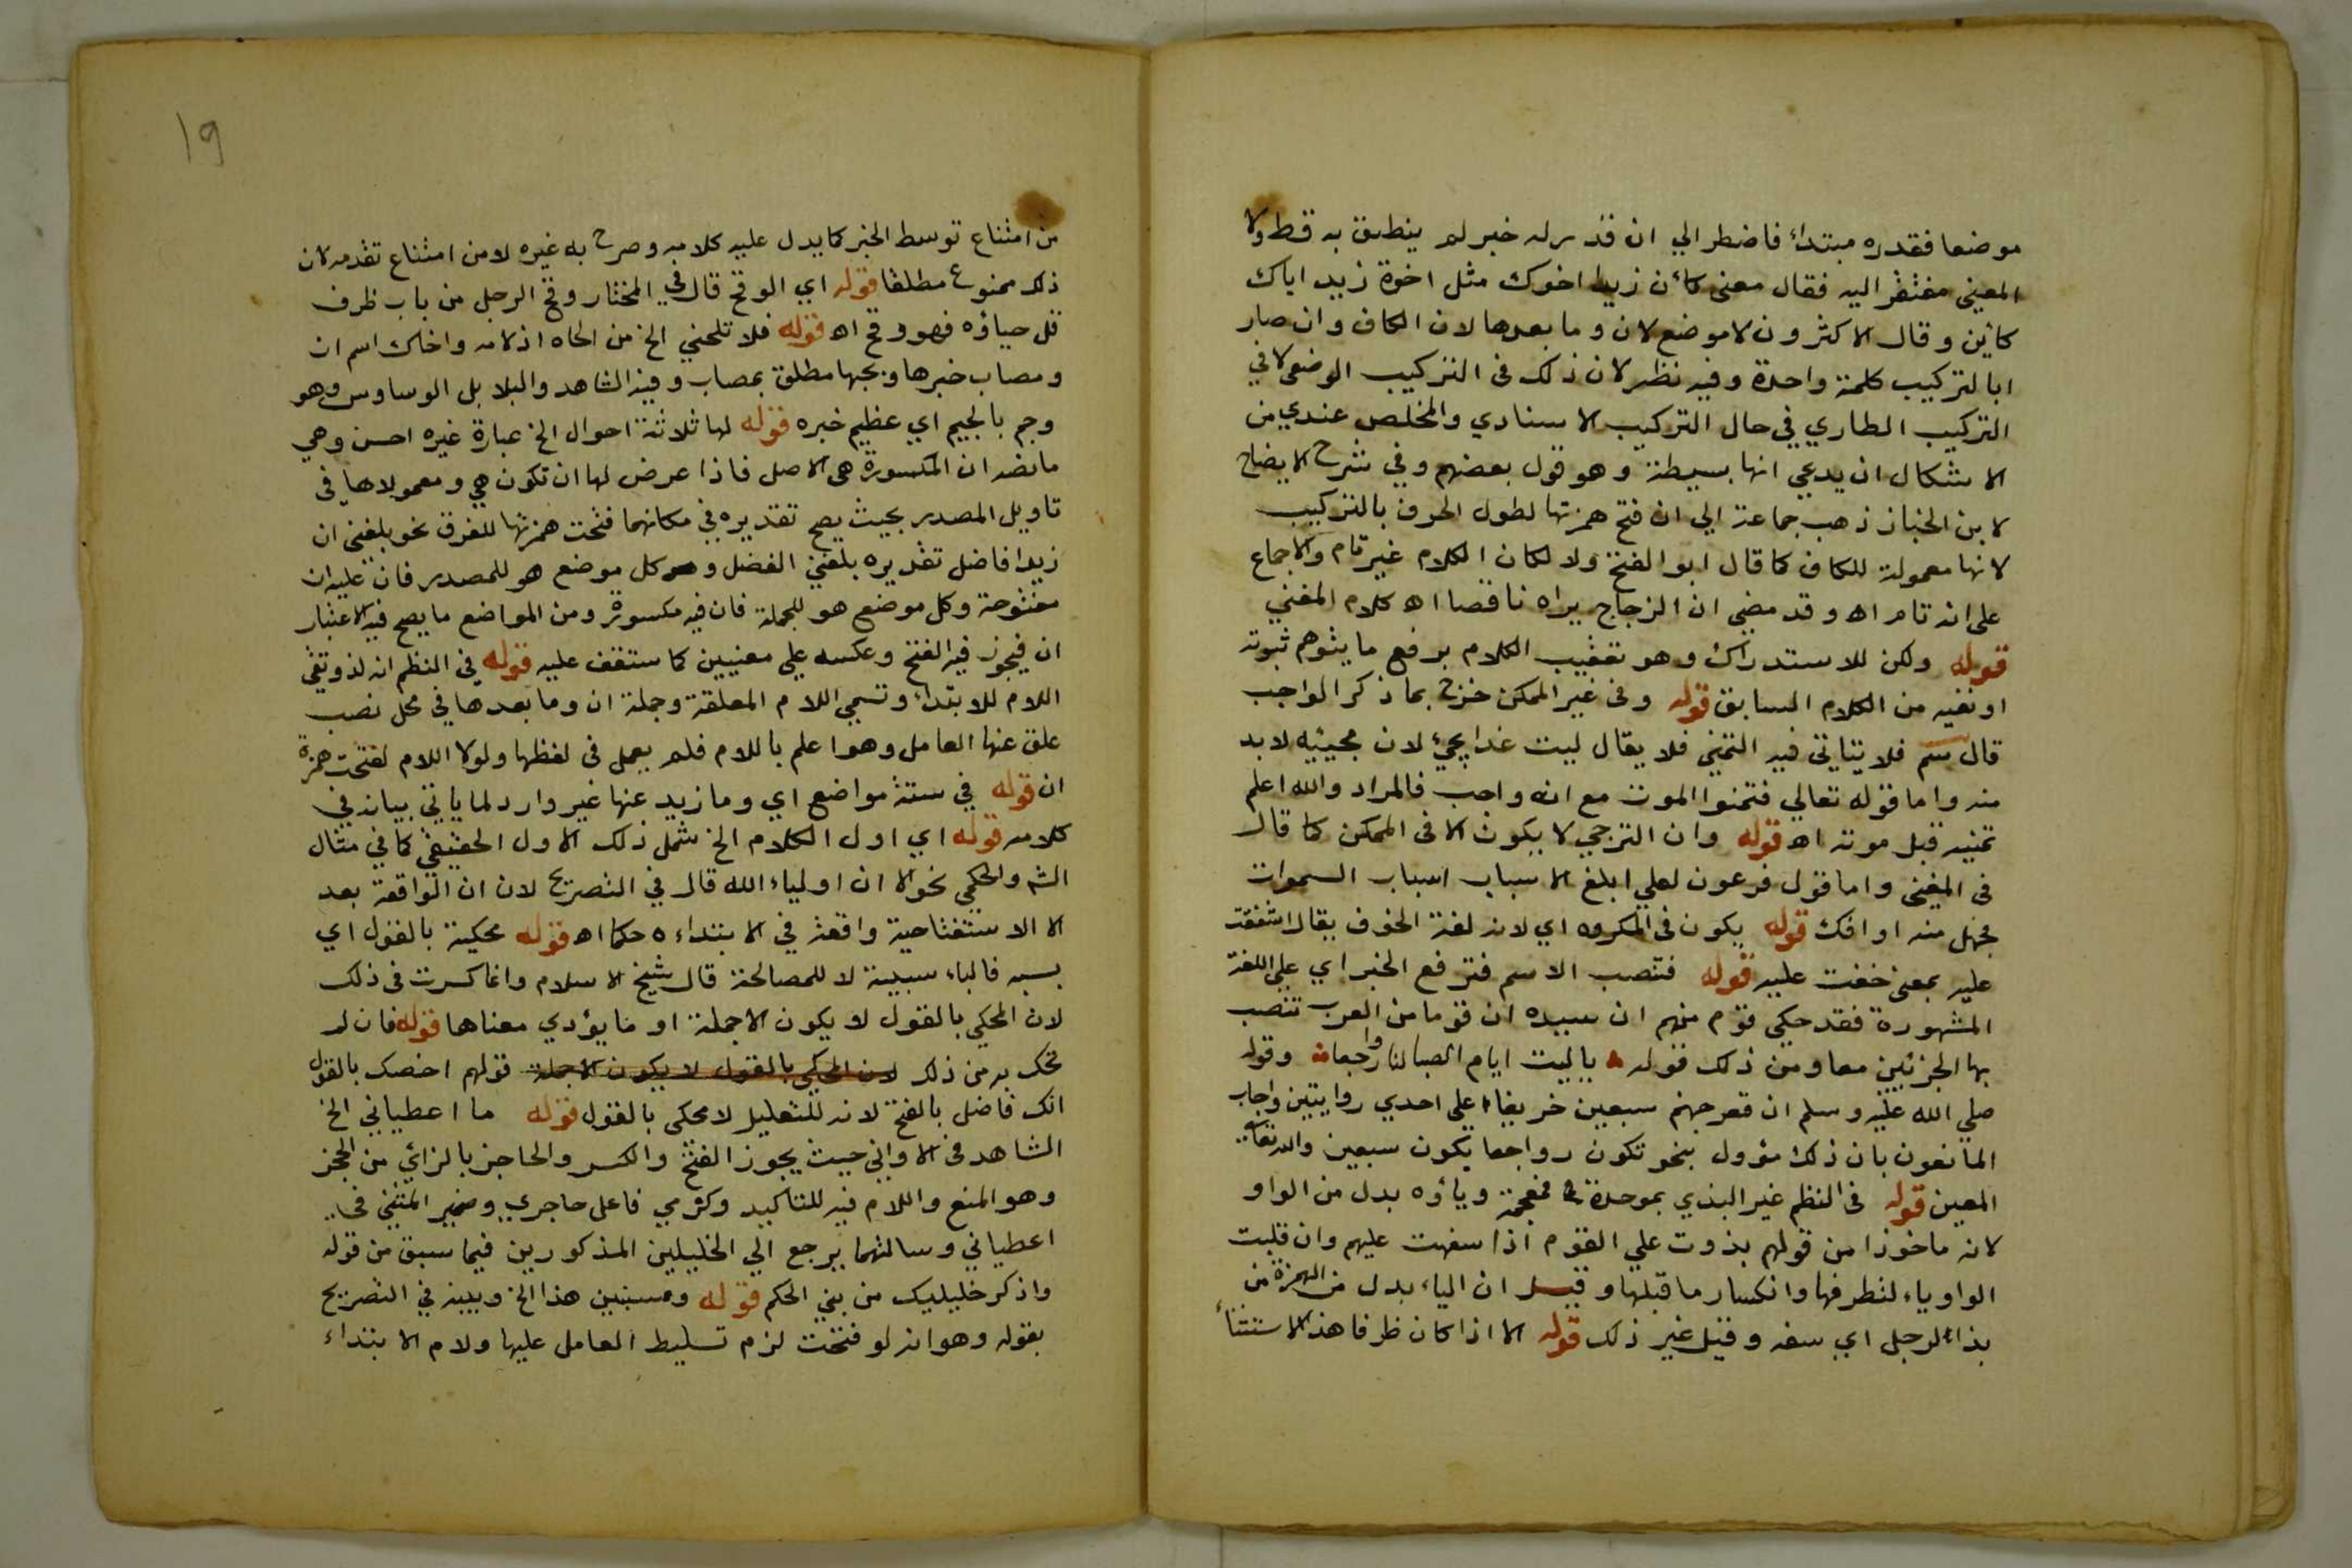 موضعا فقدره مبتداء فاضطر الي ان قدر له خبر لم ينطق به قط ولا
المعني مفتقر اليه فقال معني كأن زيدا اخوك مثل اخوة زيد اياك
كائن وقال الاكثرون لا موضع لان وما بعدها لان الكاف وان صار
ا بالتركيب كلمة واحدة وفيه نظر لان ذلك فى التركيب الوضعي لا في
التركيب الطاري في حال التركيب الاسنادي والمخلص عندي من
الاشكال ان يدعي انها بسيطة وهو قول بعضهم وفي شرح الايضاح
لابن الخباز ذهب جماعة الي ان فتح همزتها لطول الحرف بالتركيب
لانها معمولة للكاف كما قال ابو الفتح ولا لكان الكلام غير تام والاجماع
على انه تام اه وقد مضي ان الزجاج يراه ناقصا اه كلام المغني
قوله ولكن للاستدراك وهو تعقيب الكلام برفع ما يتوهم ثبوته
او نفيه من الكلام السابق قوله وفى غير الممكن خرج بما ذكر الواجب
قال سم فلا يتاتي فيه التمني فلا يقال ليت غدا يجئ لان مجيئه لا بد
منه واما قوله تعالي فتمنوا الموت مع انه واجب فالمراد والله اعلم
تمنيه قبل موته اه قوله وان الترجي لا يكون الا فى الممكن كما قال
فى المغنى واما قول فرعون لعلي ابلغ الاسباب اسباب السموات
فجهل منه او افك قوله يكون فى المكروه اي لانه لغة الخوف يقال اشفقت
عليه بمعنى خفت عليه قوله فتنصب الاسم فترفع الخبر اي على اللغة
المشهورة فقد حكي قوم منهم ان سيده ان قوما من العرب تنصب
بها الجزئين معا ومن ذلك قوله يا ليت ايام الصبا لنا رواجعا وقوله
صلي الله عليه وسلم ان قعر جهنم سبعين خريفا على احدي روايتين واجاب
المانعون بان ذلك مؤول بنحو تكون رواجعا يكون سبعين والله تعالى
المعين قوله فى النظم غير البذي بموحدة فمعجمة وياؤه بدل من الواو
لانه ماخوذا من قولهم بذوت علي القوم اذا سفهت عليهم وان قلبت
الواو ياء لتطرفها وانكسار ما قبلها وقيل ان الياء بدل من الهمزة من
بذا الرجل اي سفه وقيل غير ذلك قوله الا اذا كان ظرفا هذا الاستثناء
١٩
من امتناع توسط الخبر كما يدل عليه كلامه وصرح به غيره لا من امتناع تقدمه لان
ذلك ممنوع مطلقا قوله اي الوقح قال في المختار وقح الرجل من باب ظرف
قل حياؤه فهو وقح اه قوله فلا تلحني الخ من الحاه اذ لامه واخاك اسم ان
ومصاب خبرها وبحبها مطلق بمصاب وفيه الشاهد والبلابل الوساوس وهو
وجم بالجيم اي عظيم خبره قوله لها ثلاثة احوال الخ عبارة غيره احسن وهي
ما نصه ان المكسورة هي الاصل فاذا عرض لها ان تكون هي ومعمولاها فى
تاويل المصدر بحيث يصح تقديره في مكانهما فتحت همزتها للفرق نحو بلغني ان
زيدا فاضل تقديره بلغني الفضل وكل موضع هو للمصدر فان عليه ان
مفتوحة وكل موضع هو للجملة فان فيه مكسورة ومن المواضع ما يصح فيه الاعتبار
ان فيجوز فيه الفتح وعكسه علي معنيين كما ستقف عليه قوله في النظم انه لذو تقي
اللام للابتداء وتسمي اللام المعلقة وجملة ان وما بعدها في محل نصب
علق عنها العامل وهو اعلم باللام فلم يعمل فى لفظها ولولا اللام لفتحت همزة
ان قوله في ستة مواضع اي وما زيد عنها غير وارد لما ياتي بيانه في
كلامه قوله اي اول الكلام الخ شمل ذلك الاول الحقيقي كما في مثال
الش والحكمي نحو الا ان اولياء الله قال في التصريح لان ان الواقعة بعد
الا الاستفتاحية واقعة في الابتداء حكما اه قوله محكية بالقول اي
بسببه فالباء سببية لا للمصالحة قال شيخ الاسلام وانما كسرت فى ذلك
لان المحكي بالقول لا يكون الا جملة او ما يؤدي معناها قوله فان لم
تحك به من ذلك لان المحكي بالقول لا يكون الا جملة قولهم اخصك بالقول
انك فاضل بالفتح لانه للتعليل لا محكى بالقول قوله ما اعطياني الخ
الشاهد فى الا واني حيث يجوز الفتح والكسر والحاجز بالزائي من الحجز
وهو المنع واللام فيه للتاكيد وكرمي فاعل حاجري وضمير المثني فى
اعطياني وسالتهما يرجع الي الخليلين المذكورين فيما سبق من قوله
واذكر خليليك من بني الحكم قوله ومسنين هذا الخ وبينه في التصريح
بقوله وهو انه لو فتحت لزم تسليط العامل عليها ولام الابتداء